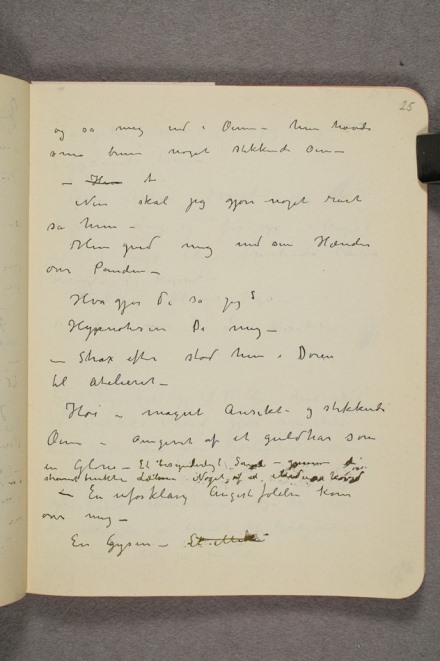 25
og så mig ind i Øinene – hun havde
små brune noget stikkende Øine –
–
Nu skal jeg gjøre noget rart
sa hun –
Hun gned mig med sine Hænder
over Panden –
Hva gjør De sa jeg?
Hypnotiserer De mig –
– Strax efter stod hun i Døren
til atelieret –
Høi – magert Ansikt – og stikkende
Øine – omgivet af et guldhår som
en Glorie – Et besynderligt
Noget af et
– En uforklarlig Angst følelse kom
over mig –
En Gysen –